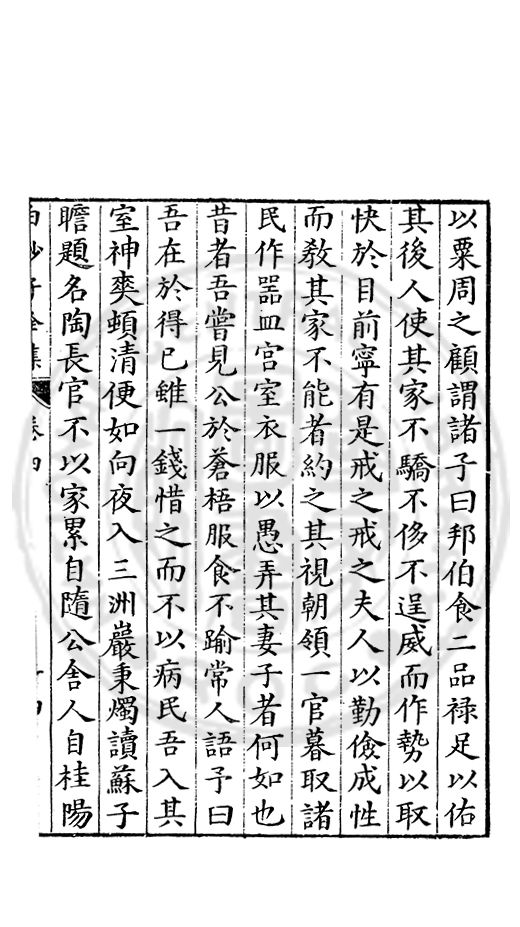 以粟周之顧謂諸子曰邦伯食二品祿足以佑
其後人使其家不驕不侈不逞威而作勢以取
快於目前寧有是戒之戒之夫人以勤儉成性
而敎其家不能者約之其視朝領一官暮取諸
民作噐皿宫室衣服以愚弄其妻子者何如也
昔者吾嘗見公於蒼梧服食不踰常人語予曰
吾在於得已雖一錢惜之而不以病民吾入其
室神爽頓清便如向夜入三洲巖秉燭讀蘇子
瞻題名陶長官不以家累自隨公舎人自桂陽
白沙子全集 卷四